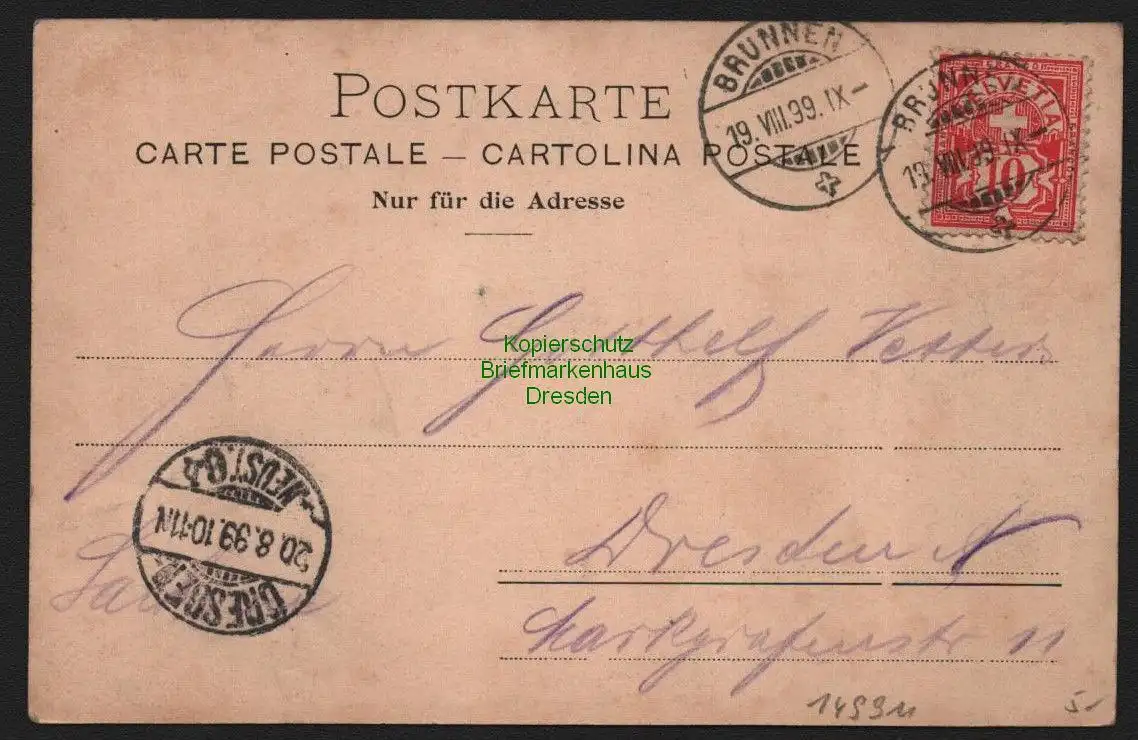 POSTKARTE
CARTE POSTALE – CARTOLINA POSTALE
Nur für die Adresse
BRUNNEN
19. VIII. 99. IX –
BRUNNEN
19. VIII. 99. IX –
HELVETIA
10
Herrn Gotthelf Vetters
Kopierschutz
Briefmarkenhaus
Dresden
Dresden N
Markgrafenstr 11
Sachsen
DRESDEN
20.8.99.10-11.N
NEUST.
1499u